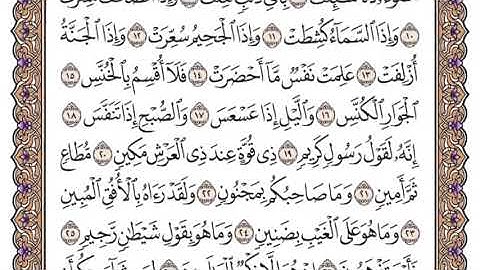 وَإِذَا ٱلسَّمَآءُ كُشِطَتۡ ١١ وَإِذَا ٱلۡجَحِيمُ سُعِّرَتۡ ١٢ وَإِذَا ٱلۡجَنَّةُ
أُزۡلِفَتۡ ١٣ عَلِمَتۡ نَفۡسٞ مَّآ أَحۡضَرَتۡ ١٤ فَلَآ أُقۡسِمُ بِٱلۡخُنَّسِ ١٥
ٱلۡجَوَارِ ٱلۡكُنَّسِ ١٦ وَٱلَّيۡلِ إِذَا عَسۡعَسَ ١٧ وَٱلصُّبۡحِ إِذَا تَنَفَّسَ ١٨
إِنَّهُۥ لَقَوۡلُ رَسُولٖ كَرِيمٖ ١٩ ذِي قُوَّةٍ عِندَ ذِي ٱلۡعَرۡشِ مَكِينٖ ٢٠ مُّطَاعٖ
ثَمَّ أَمِينٖ ٢١ وَمَا صَاحِبُكُم بِمَجۡنُونٖ ٢٢ وَلَقَدۡ رَءَاهُ بِٱلۡأُفُقِ ٱلۡمُبِينِ
٢٣ وَمَا هُوَ عَلَى ٱلۡغَيۡبِ بِضَنِينٖ ٢٤ وَمَا هُوَ بِقَوۡلِ شَيۡطَٰنٖ رَّجِيمٖ ٢٥